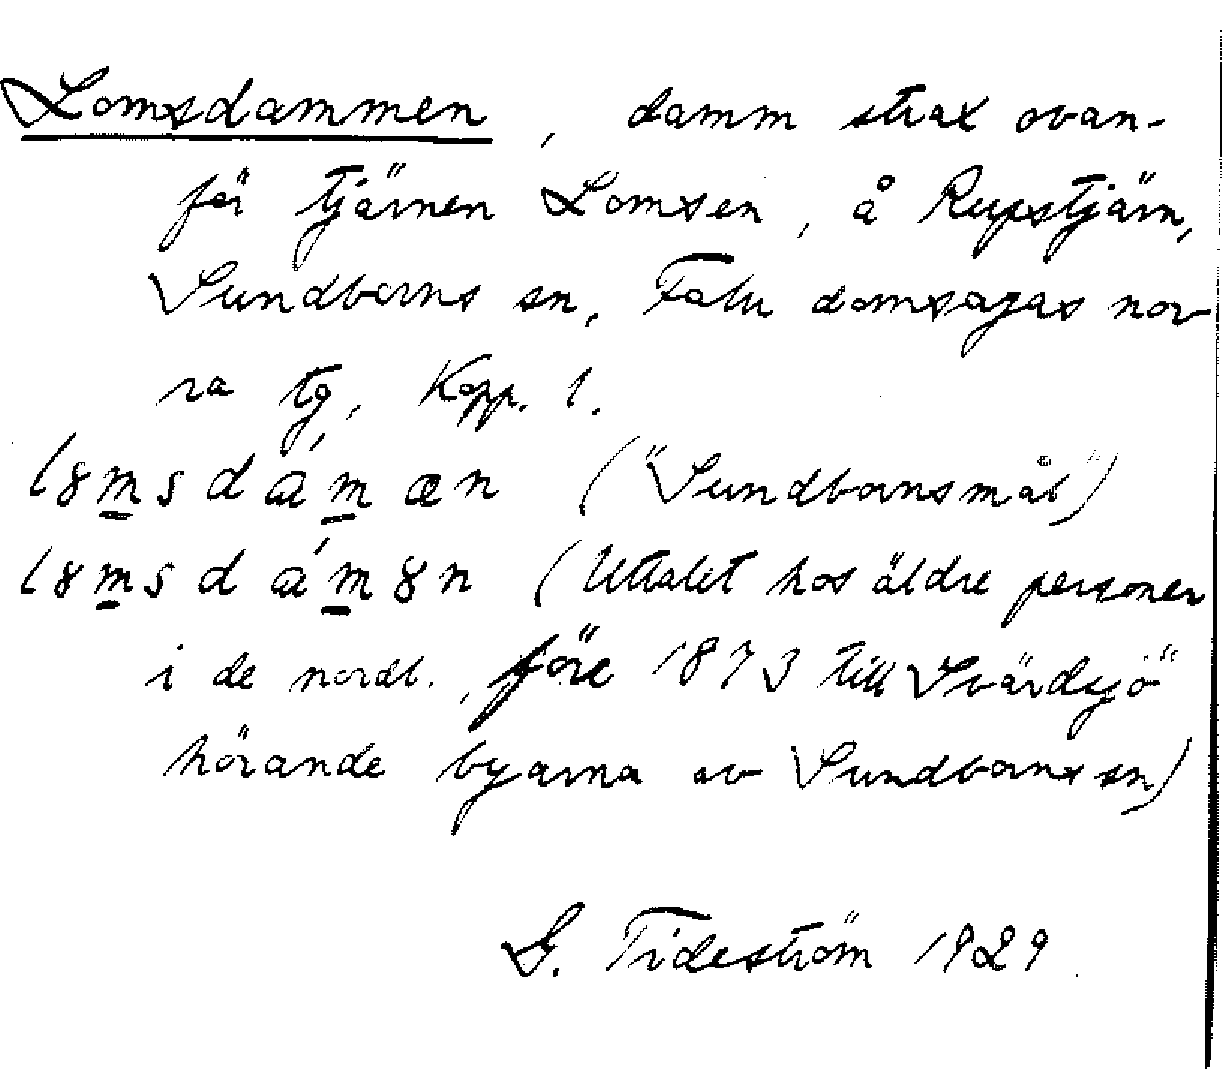 Lomsdammen, damm strax ovan-
för tjärnen Lomsen, å Rupstjärn,
Sundborns sn, Falu domsagas nor-
ra tg, Kopp. l.
l8msdámæn ("Sundbornsmål")
l8msdám8n (Uttalet hos äldre personer
i de nordl., före 1873 till Svärdsjö
hörande byarna av Sundborns sn)
G. Tideström 1929